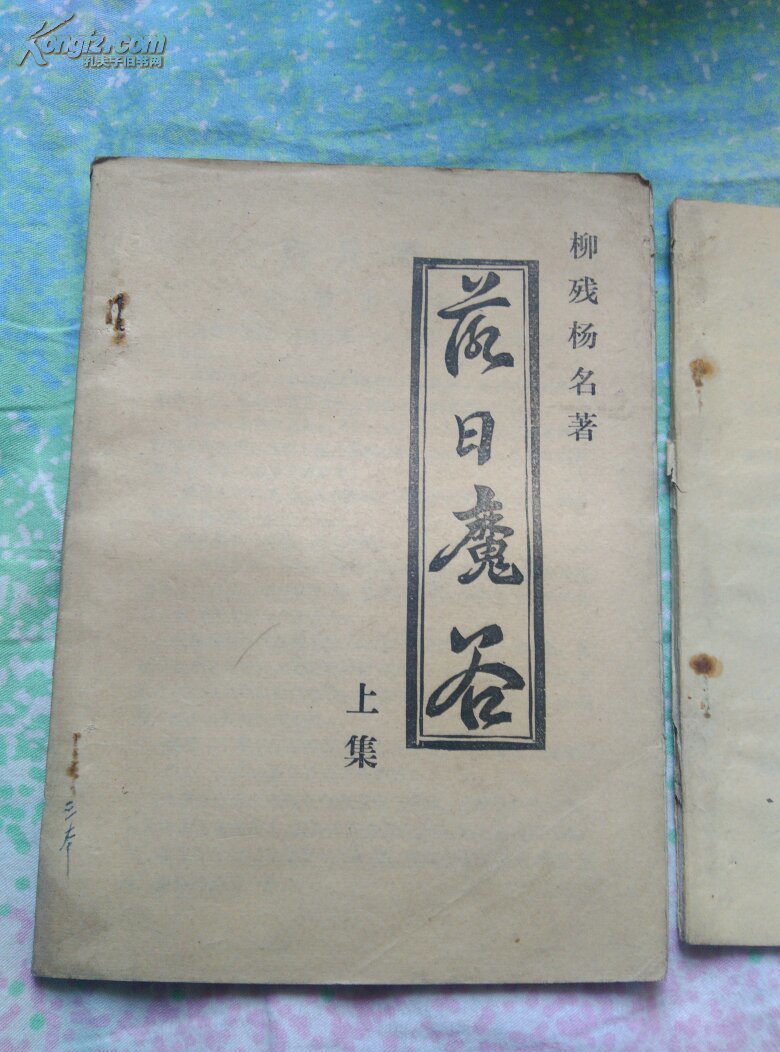 Kongfz.com
孔夫子旧书网
柳残杨名著
落日魔谷
上集
三本